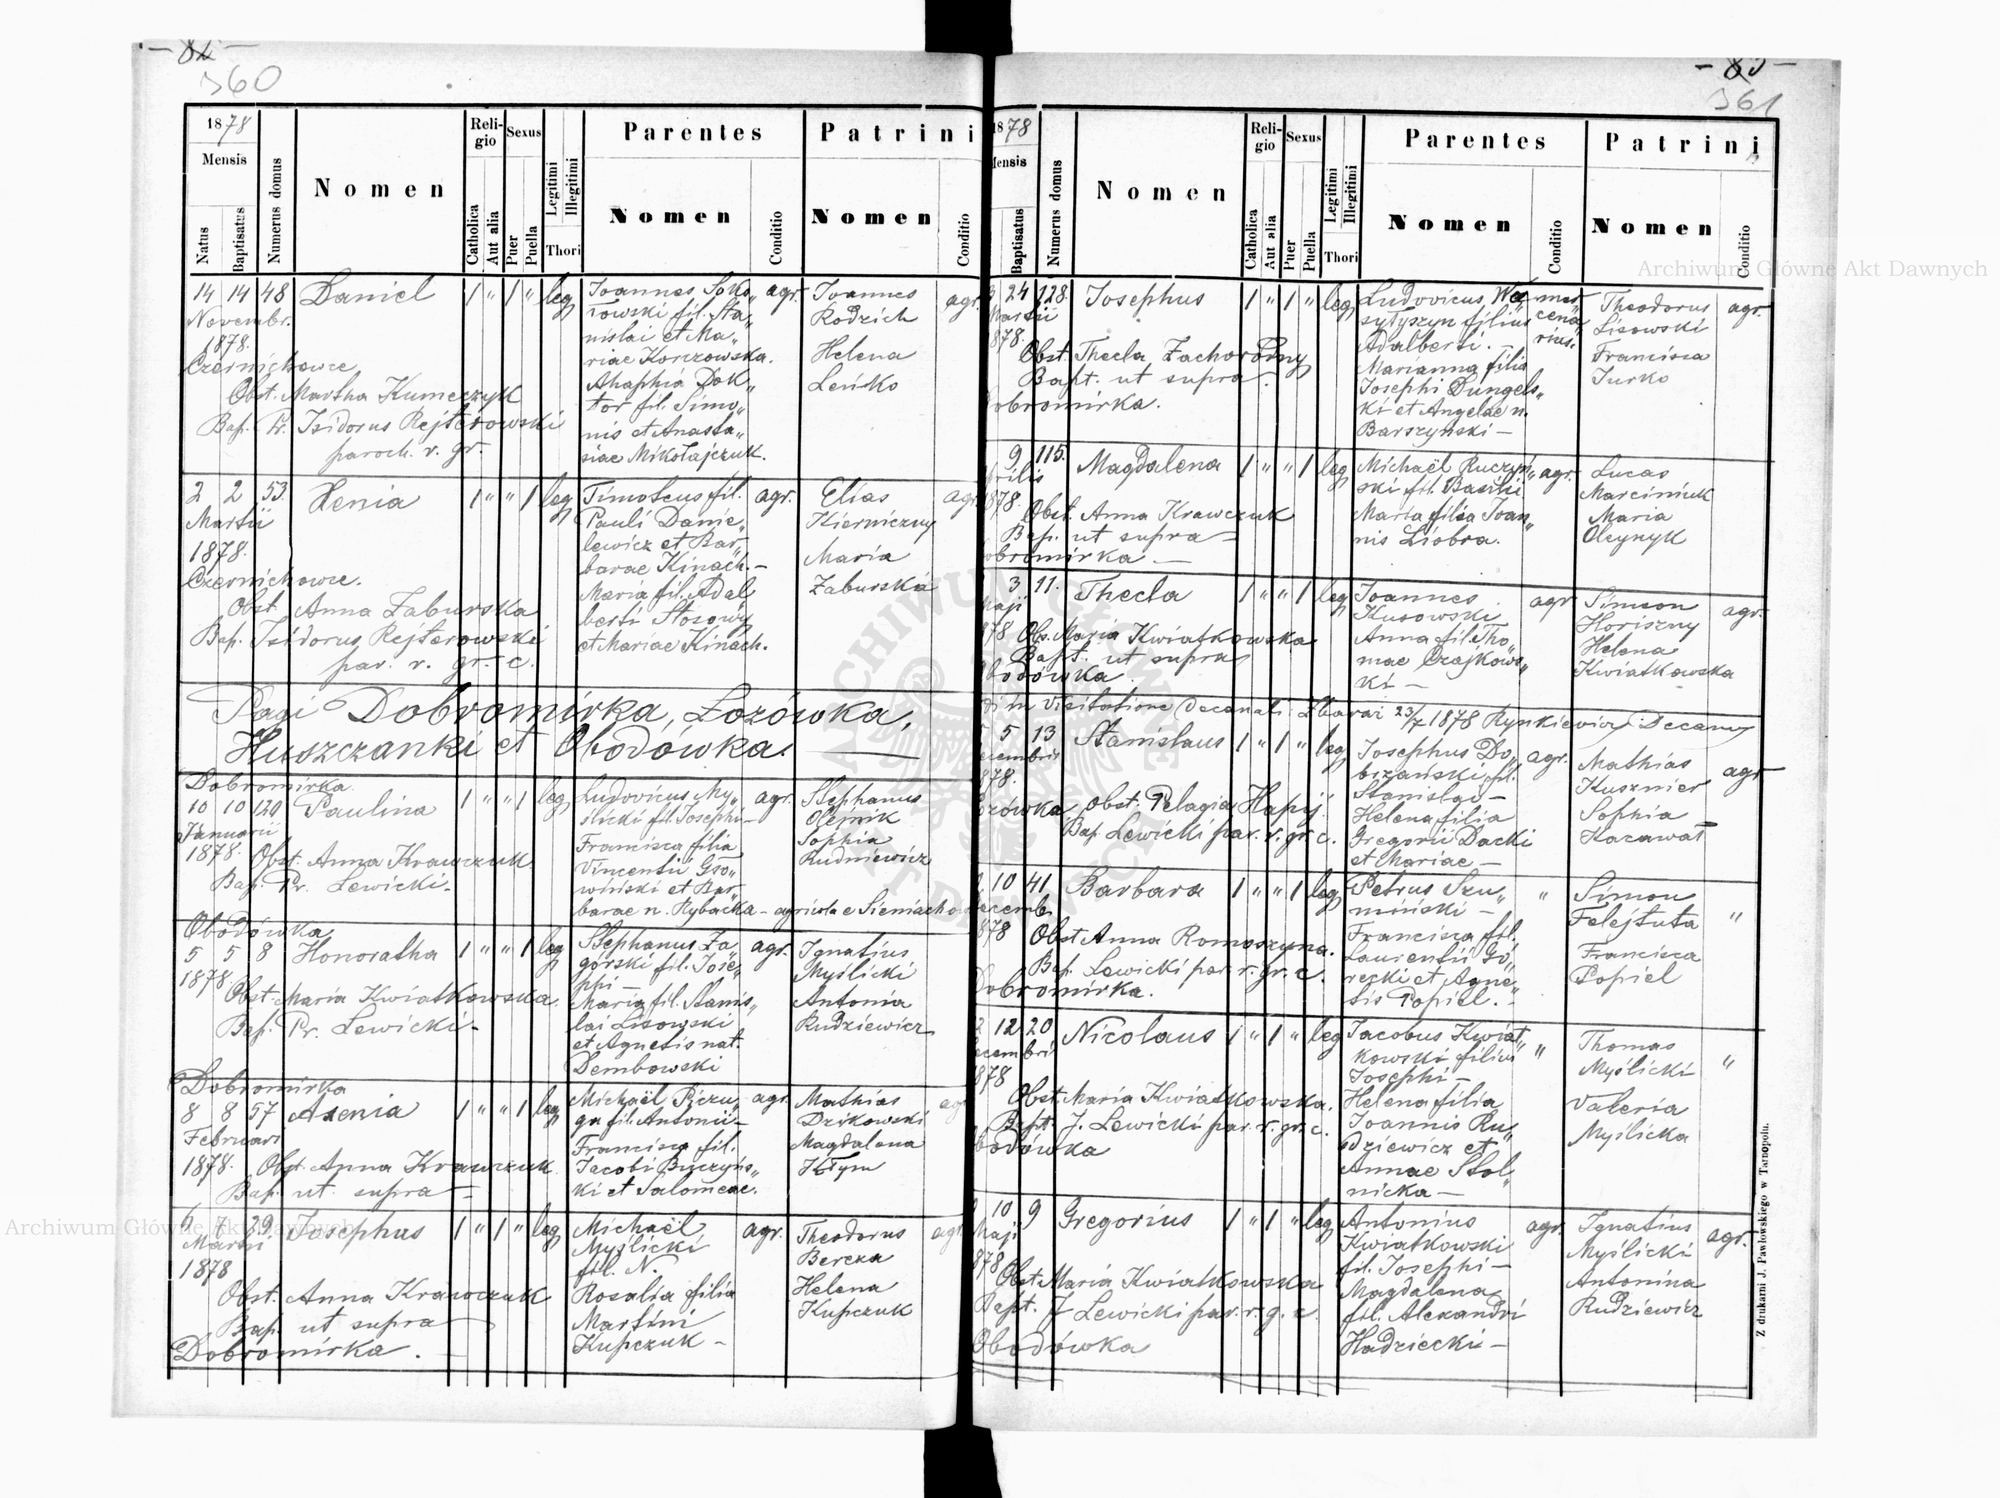 - 82 -
360
1878
Mensis
Natus
Baptisatus
Numerus domus
Nomen
Religio
Catholica
Aut alia
Sexus
Puer
Puella
Legitimi
Illegitimi
Thori
Parentes
Nomen
Conditio
Patrini
Nomen
Conditio
14 14 48 Daniel 1 " 1 " leg
Novembr.
1878.
Czernichowce
Obst. Martha Kumeczyk
Bap. Pr. Isidorus Rejterowski
paroch. r. gr.
Joannes Soko„
łowski fil. Sta„
nislai et Ma„
riae Korczowska.
Ahaphia Dok„
tor fil. Simo„
nis et Anasta„
siae Mikołajczuk.
agr.
Joannes
Rodzich
Helena
Leńko
agr.
2 2 53. Xenia 1 " " 1 leg
Martii
1878.
Czernichowce.
Obst. Anna Zaburska
Bap. Isidorus Rejterowski
par. r. gr. c.
Timoteus fil.
Pauli Danie„
lewicz et Bar„
barae Kinach.—
Maria fil. Adal
berti Stosowy
et Mariae Kinach.
agr.
Elias
Kierniczny
Maria
Zaburska
agr.
Pagi Dobromirka, Łozówka,
Huszczanki et Obodówka.
Dobromirka
10 10 120 Paulina 1 " " 1 leg
Januarii
1878. Obst. Anna Krawczuk
Bap. Pr. Lewicki -
Ludovicus My„
slicki fil. Josephi -
Francisca filia
Vincentii Gło„
wiński et Bar„
barae n. Rybacka - agricola e Sieniachow
agr.
Stephanus
Olejnik
Sophia
Rudniewicz
Obodówka
5 5 8 Honoratha 1 " " 1 leg
1878
Obst. Maria Kwiatkowska
Bap. Pr. Lewicki -
Stephanus Za„
górski fil. Jose„
phi —
Maria fil. Stanis„
lai Lisowski
et Agnetis nat.
Dembowski
agr.
Ignatius
Myślicki
Antonia
Rudziewicz
Dobromirka
8 8 57 Axenia 1 " " 1 leg
Februari
1878. Obst. Anna Krawczuk
Bap. ut supra -
Michaël Piczu„
ga fil. Antonii -
Francisca fil.
Jacobi Buczyńs„
ki et Salomeae.
agr.
Mathias
Dzikowski
Magdalena
Kłym
agr
6 7 29 Josephus 1 " 1 " leg
Martii
1878
Obst. Anna Krawczuk
Bap. ut supra
Dobromirka. —
Michaël
Myślicki
fil. N.
Rosalia filia
Martini
Kupczuk -
agr.
Theodorus
Bereza
Helena
Kupczuk
agr
- 83 -
361
1878
Mensis
Baptisatus
Numerus domus
Nomen
Religio
Catholica
Aut alia
Sexus
Puer
Puella
Legitimi
Illegitimi
Thori
Parentes
Nomen
Conditio
Patrini
Nomen
Conditio
24 128. Josephus 1 " 1 " leg
Martii
878.
Obst. Thecla Zachorodny
Bapt. ut supra.
Dobromirka.
Ludovicus Wa„
syłyszyn filius
Adalberti. -
Marianna filia
Josephi Dungels„
ki et Angelae n.
Barszyński —
mer
cena
rius.
Theodorus
Lisowski
Francisca
Jurko
agr.
9 115. Magdalena 1 " " 1 leg
prilis
1878.
Obst. Anna Krawczuk
Bap. ut supra —
obromirka —
Michaël Ruczyń„
ski fil. Basilii
Maria filia Joan„
nis Liobra.
agr.
Lucas
Marciniuk
Maria
Oleynyk
3 11. Thecla 1 " " 1 leg
Maji
878 Obs. Maria Kwiatkowska
Bapt. ut supra
Obodówka.
Joannes
Kusowski
Anna fil. Tho„
mae Czajkows„
ki —
agr
Simeon
Horiszny
Helena
Kwiatkowska
agr.
in Visitatione Decanali Zbaraż 23/7 1878 Rynkiewicz Decanus
5 13 Stanislaus 1 " 1 " leg
ecembris
878.
ozówka Obst. Pelagia Hapij
Bap. Lewicki par. r. gr. c.
Josephus Do„
brzański fil.
Stanislai —
Helena filia
Gregorii Dacki
et Mariae —
agr.
Mathias
Kusznier
Sophia
Kazawał
agr
10 41. Barbara 1 " " 1 leg
ecembr
878
Obst. Anna Romaszyna.
Bap. Lewicki par. r. gr. c.
Dobromirka.
Petrus Szu„
miński —
Francisca fil.
Laurentii Gó„
recki et Agne„
tis Popiel. -
"
Simon
Felejtuta
Francisca
Popiel
"
12 20 Nicolaus 1 " 1 " leg
ecembris
1878
Obst. Maria Kwiatkowska.
Bapt. J. Lewicki par. r. gr. c.
bodówka
Jacobus Kwiat„
kowski filius
Josephi —
Helena filia
Joannis Ru„
dziewicz et
Annae Stol„
nicka —
"
Thomas
Myślicki
Valeria
Myślicka
"
10 9 Gregorius 1 " 1 " leg
Maji
878
Obst. Maria Kwiatkowska
Bapt. J Lewicki par. r. g. c.
Obodówka
Antonius
Kwiatkowski
fil. Josephi —
Magdalena
fil. Alexandri
Hadziecki —
agr.
Ignatius
Myślicki
Antonina
Rudziewicz
agr.
Z drukarni J. Pawłowskiego w Tarnopolu.
Archiwum Główne Akt Dawnych
Archiwum Główne Akt Dawnych
ARCHIWUM GŁÓWNE AKT DAWNYCH